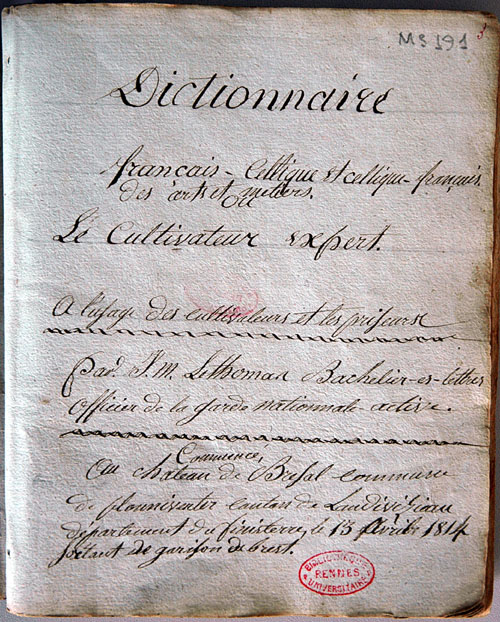 MS 191
3
Dictionnaire
français - Celtique et celtique - français
des arts et métiers.
Le Cultivateur expert.
A l'usage des cultivateurs et les priseurs
Par J. M. Lethomas Bachelier-es-lettres
officier de la garde nationnale active.
Commencé
Au château de Brésal commune
de plounéventer canton de Landivisiau
département du finisterre, le 15 février 1814
sortant de garison de brest.
BIBLIOTHEQUE
RENNES
UNIVERSITAIRE